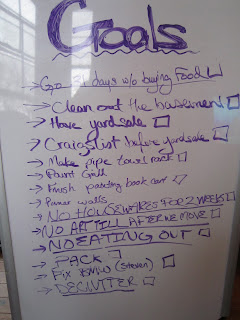 Goals
Go 21 days w/o buying Food
Clean out the basement
Have yardsale
Craigslist before yardsale
Make pipe towel rack
Paint Grill
Finish painting book case
Primer walls
NO HOUSEWARES FOR 2 WEEKS
NO ART TILL AFTER WE MOVE
NO EATING OUT
PACK
Fix BMW (Steven)
DECLUTTER